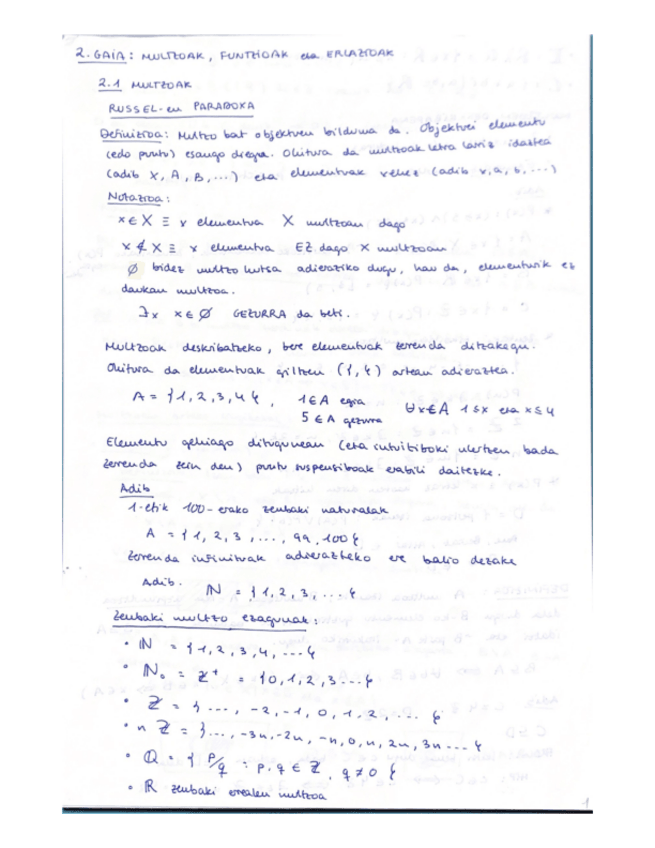 2. GAIA: MULTZOAK, FUNTZIOAK eta ERLAZIOAK
2.1 MULTZOAK
RUSSEL-en PARADOXA
Definizioa: Multzo bat objektuen bilduma da. Objektuei elementu
(edo puntu) esango diegu. Ohitura da multzoak letra larriz idaztea
(adib X, A, B, ...) eta elementuak xehez (adib x, a, b, ...)
Notazioa:
x ∈ X ≡ x elementua X multzoan dago
x ∉ X ≡ x elementua EZ dago X multzoan
∅ bidez multzo hutsa adieraziko dugu, hau da, elementurik ez
daukan multzoa.
∃x x ∈ ∅ GEZURRA da beti.
Multzoak deskribatzeko, bere elementuak zerrenda ditzakegu.
Ohitura da elementuak giltzen ({, }) artean adieraztea.
A = {1, 2, 3, 4}, 1 ∈ A egia ∀x ∈ A 1 ≤ x eta x ≤ 4
5 ∈ A gezurra
Elementu gehiago ditugunean (eta intuitiboki ulertzen bada
zerrenda zein den) puntu suspentsiboak erabili daitezke.
Adib
1-etik 100-erako zenbaki naturalak
A = {1, 2, 3, ..., 99, 100}
Zerrenda infinituak adierazteko ere balio dezake
Adib. ℕ = {1, 2, 3, ...}
Zenbaki multzo ezagunak:
• ℕ = {1, 2, 3, 4, ...}
• ℕ₀ = ℤ⁺ = {0, 1, 2, 3, ...}
• ℤ = {..., -2, -1, 0, 1, 2, ...}
• nℤ = {..., -3n, -2n, -n, 0, n, 2n, 3n ...}
• ℚ = {p/q : p, q ∈ ℤ, q ≠ 0}
• ℝ zenbaki errealen multzoa
1